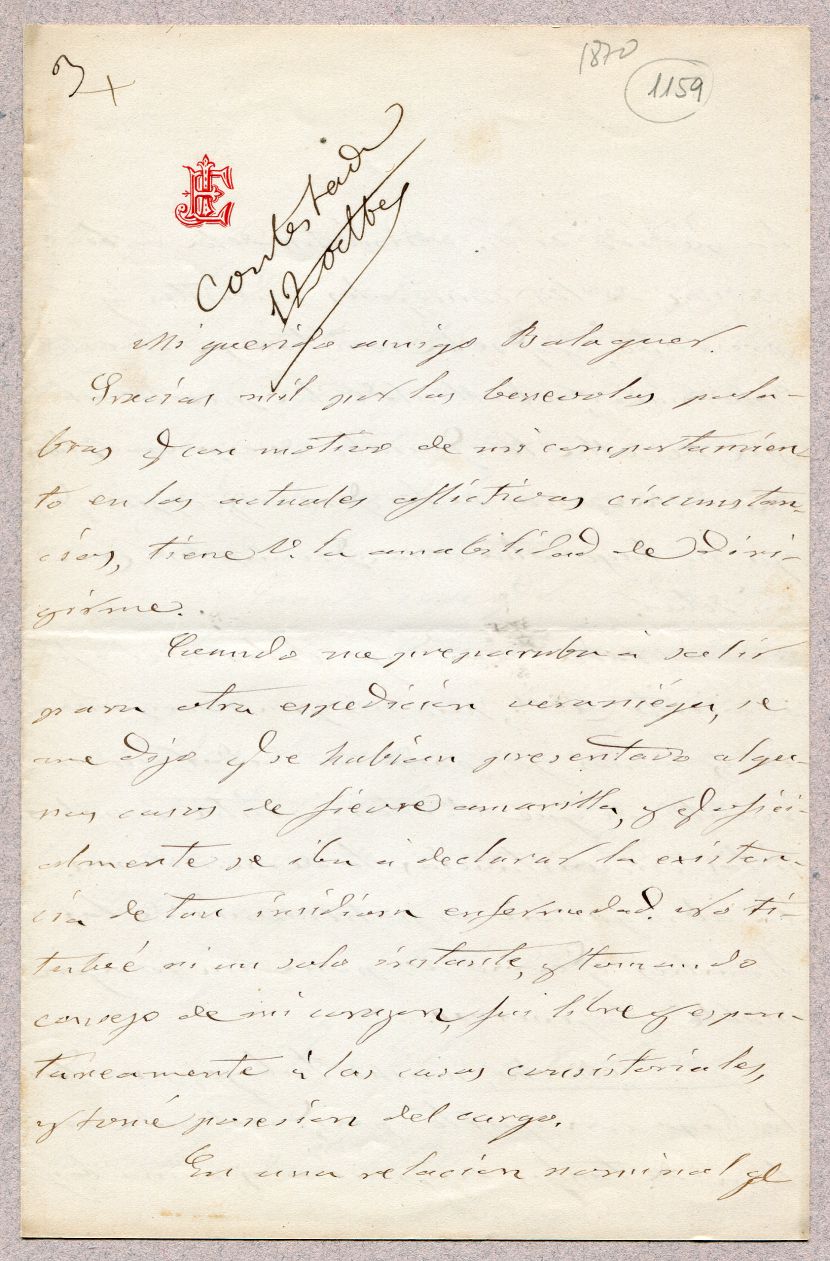 3
1870
1159
contestada
12 octbe
Mi querido amigo Balaguer.
Gracias mil por las benevolas pala-
bras q con motivo de mi comportamien-
to en las actuales aflictivas circunstan-
cias, tiene V. la amabilidad de diri-
girme.
Cuando me preparaba á salir
para otra espedición veraniega, se
me dijo q se habian presentado algu-
nos casos de fievre amarilla, y q ofici-
almente se iba á declarar la existen-
cia de tan insidiosa enfermedad. No ti-
tubeé ni un solo instante, y tomando
consejo de mi corazon, fui libre y espon-
taneamente á las casas consistoriales,
y tomé posesion del cargo.
En una relacion nominal ql